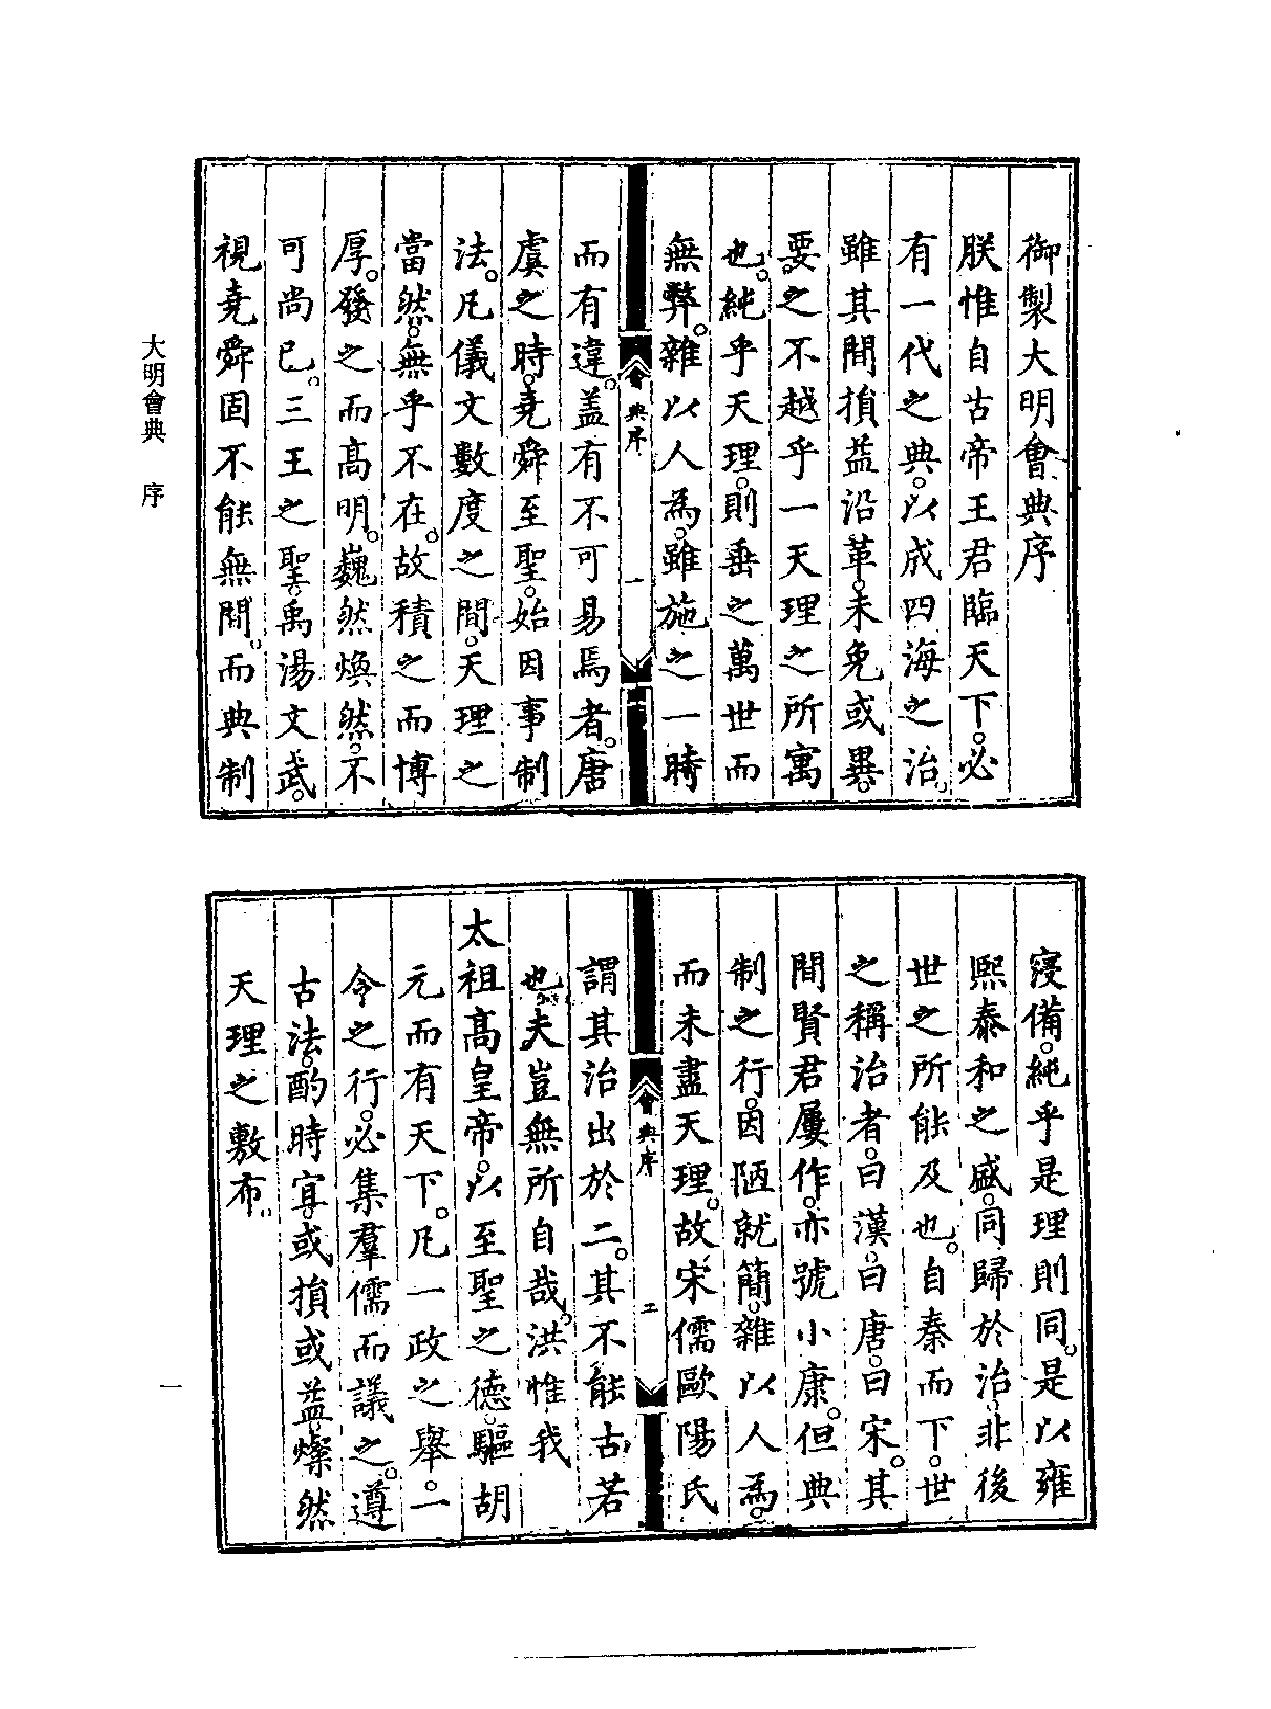 御製大明會典序
朕惟自古帝王君臨天下。必
有一代之典。以成四海之治。
雖其間損益沿革。未免或異。
要之不越乎一天理之所寓
也。純乎天理。則垂之萬世而
無弊。雜以人為。雖施之一時
會典序
一
而有違。蓋有不可易焉者。唐
虞之時。堯舜至聖。始因事制
法。凡儀文數度之間。天理之
當然。無乎不在。故積之而博
厚。發之而高明。巍然煥然。不
可尚已。三王之聖。禹湯文武。
視堯舜固不能無間。而典制
寖備。純乎是理則同。是以雍
熙泰和之盛。同歸於治。非後
世之所能及也。自秦而下。世
之稱治者。曰漢。曰唐。曰宋。其
間賢君屢作。亦號小康。但典
制之行。因陋就簡。雜以人為。
而未盡天理。故宋儒歐陽氏
會典序
二
謂其治出於二。其不能古若
也。夫豈無所自哉。洪惟我
太祖高皇帝。以至聖之德。驅胡
元而有天下。凡一政之舉。一
令之行。必集羣儒而議之。遵
古法。酌時宜。或損或益。燦然
天理之敷布。
大明會典 序
一